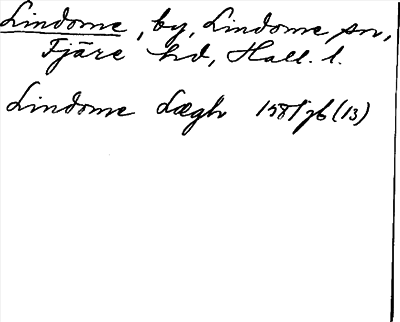 Lindome, by, Lindome sn,
Fjäre hd, Hall. l.
Lindome Lægh